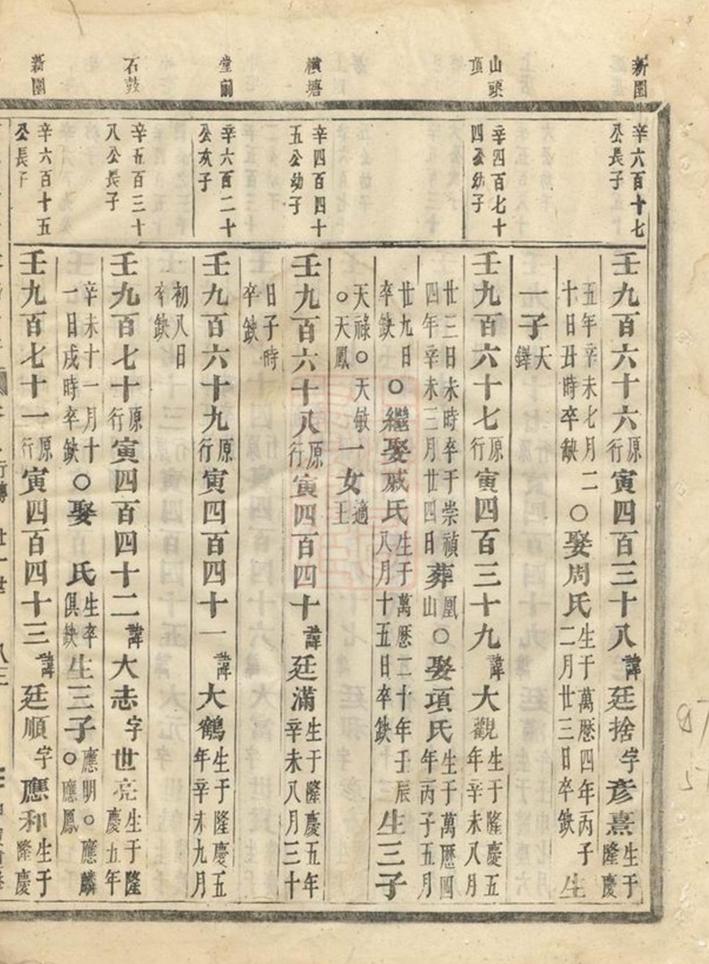 新園
辛六百十七
公長子
壬九百六十六原行寅四百三十八諱廷捨字彥熹生于隆慶
五年辛未七月二十日丑時卒缺〇娶周氏生于萬歷四年丙子二月廿三日卒缺生
一子天鐸
山頭頂
辛四百七十
四公幼子
壬九百六十七原行寅四百三十九諱大觀生于隆慶五年辛未八月
廿三日未時卒于崇禎四年辛未三月廿四日葬鳳山〇娶項氏生于萬歷四年丙子五月
廿九日卒缺〇繼娶戚氏生于萬歷二十年壬辰八月十五日卒缺生三子
天祿〇天敏〇天鳳一女適王
橫塘
辛四百四十
五公幼子
壬九百六十八原行寅四百四十諱廷滿生于隆慶五年辛未八月三十
日子時卒缺
堂前
辛六百二十
公次子
壬九百六十九原行寅四百四十一諱大鶴生于隆慶五年辛未九月
初八日卒缺
石鼓
辛五百三十
八公長子
壬九百七十原行寅四百四十二諱大志字世亮生于隆慶五年
辛未十一月十一日戌時卒缺〇娶氏生卒俱缺生三子應明〇應麟〇應鳳
新園
辛六百十五
公長子
壬九百七十一原行寅四百四十三諱廷順字應和生于隆慶